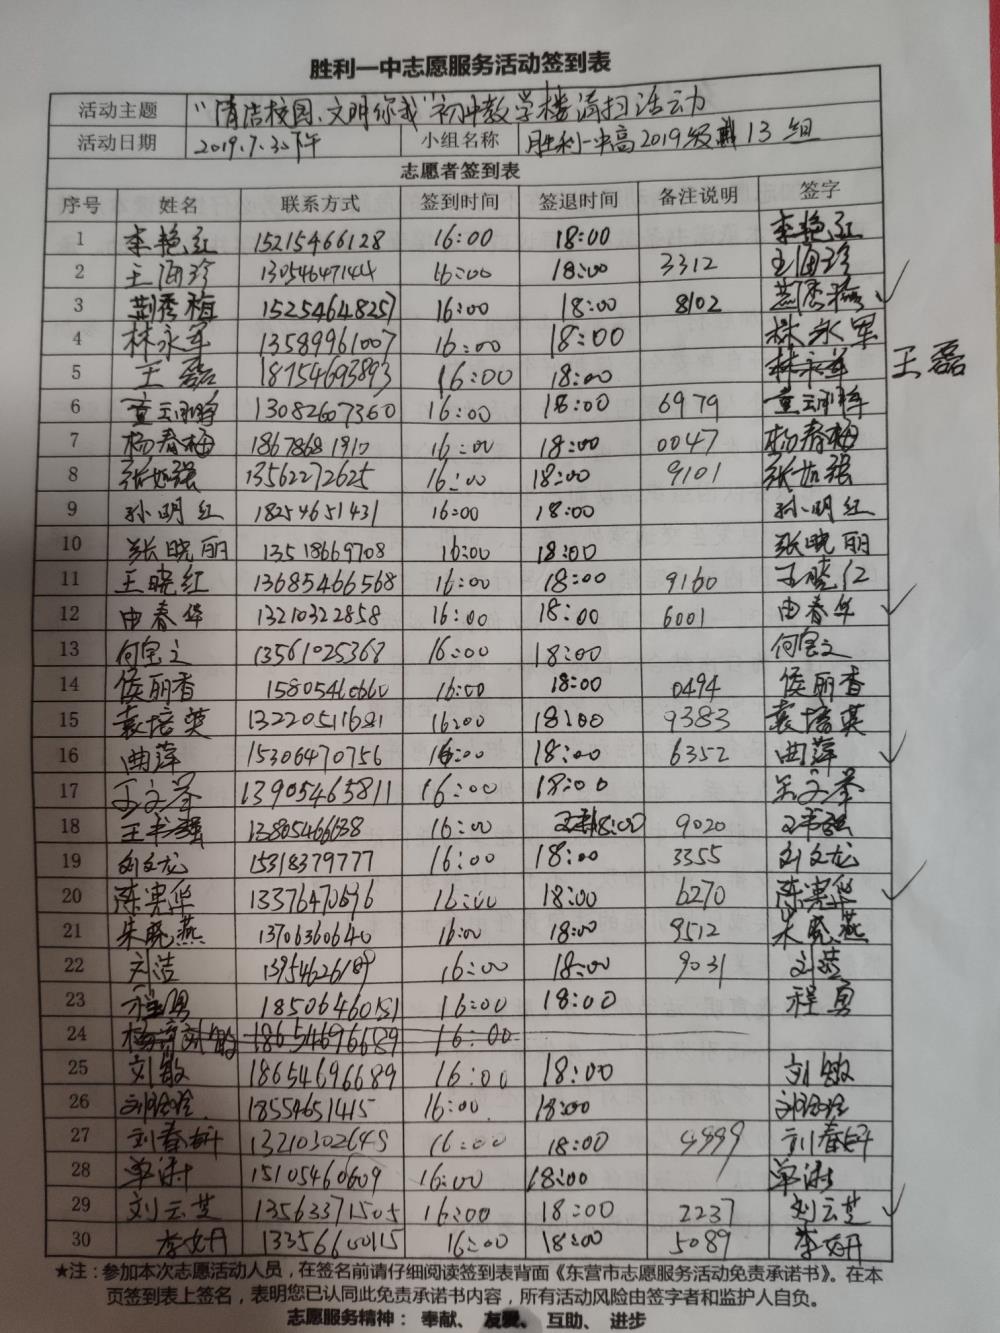 胜利一中志愿服务活动签到表
活动主题 "清洁校园、文明你我"初中教学楼清扫活动
活动日期 2019.7.30下午 小组名称 胜利一中高2019级 13组
志愿者签到表
序号 姓名 联系方式 签到时间 签退时间 备注说明 签字
1 李艳红 15215466128 16:00 18:00 李艳红
2 王海珍 13054647144 16:00 18:00 3312 王海珍
3 荆秀梅 15254648257 16:00 18:00 8102 荆秀梅
4 林永军 13589961007 16:00 18:00 林永军
5 王磊 18754693893 16:00 18:00 林永军 王磊
6 13082607360 16:00 18:00 6979
7 杨春梅 18678681910 16:00 18:00 0047 杨春梅
8 张如强 13562272625 16:00 18:00 9101 张如强
9 孙明红 18254651431 16:00 18:00 孙明红
10 张晓丽 13518669708 16:00 18:00 张晓丽
11 王晓红 13685466568 16:00 18:00 9160 王晓红
12 由春华 13210322858 16:00 18:00 6001 由春华
13 何宝之 13561025368 16:00 18:00 何宝之
14 侯丽香 15805460660 16:00 18:00 0494 侯丽香
15 袁培英 13220511681 16:00 18:00 9383 袁培英
16 曲萍 15306470756 16:00 18:00 6352 曲萍
17 王文举 13905465811 16:00 18:00 王文举
18 王书强 13805466638 16:00 18:00 9020 王书强
19 刘文龙 15318379777 16:00 18:00 3355 刘文龙
20 陈宪华 13376470696 16:00 18:00 6270 陈宪华
21 朱晓燕 13706360640 16:00 18:00 9512 朱晓燕
22 刘洁 16:00 18:00 9031 刘洁
23 程勇 18506460151 16:00 18:00 程勇
24 18654696689 16:00
25 刘敏 18654696689 16:00 18:00 刘敏
26 18554651415 16:00 18:00
27 刘春妍 13210302645 16:00 18:00 4999 刘春妍
28 单涛 15105460609 16:00 18:00 单涛
29 刘云芝 13563371505 16:00 18:00 2237 刘云芝
30 李妍 13356600115 16:00 18:00 5089 李妍
★注：参加本次志愿活动人员，在签名前请仔细阅读签到表背面《东营市志愿服务活动免责承诺书》。在本
页签到表上签名，表明您已认同此免责承诺书内容，所有活动风险由签字者和监护人自负。
志愿服务精神： 奉献、 友爱、 互助、 进步